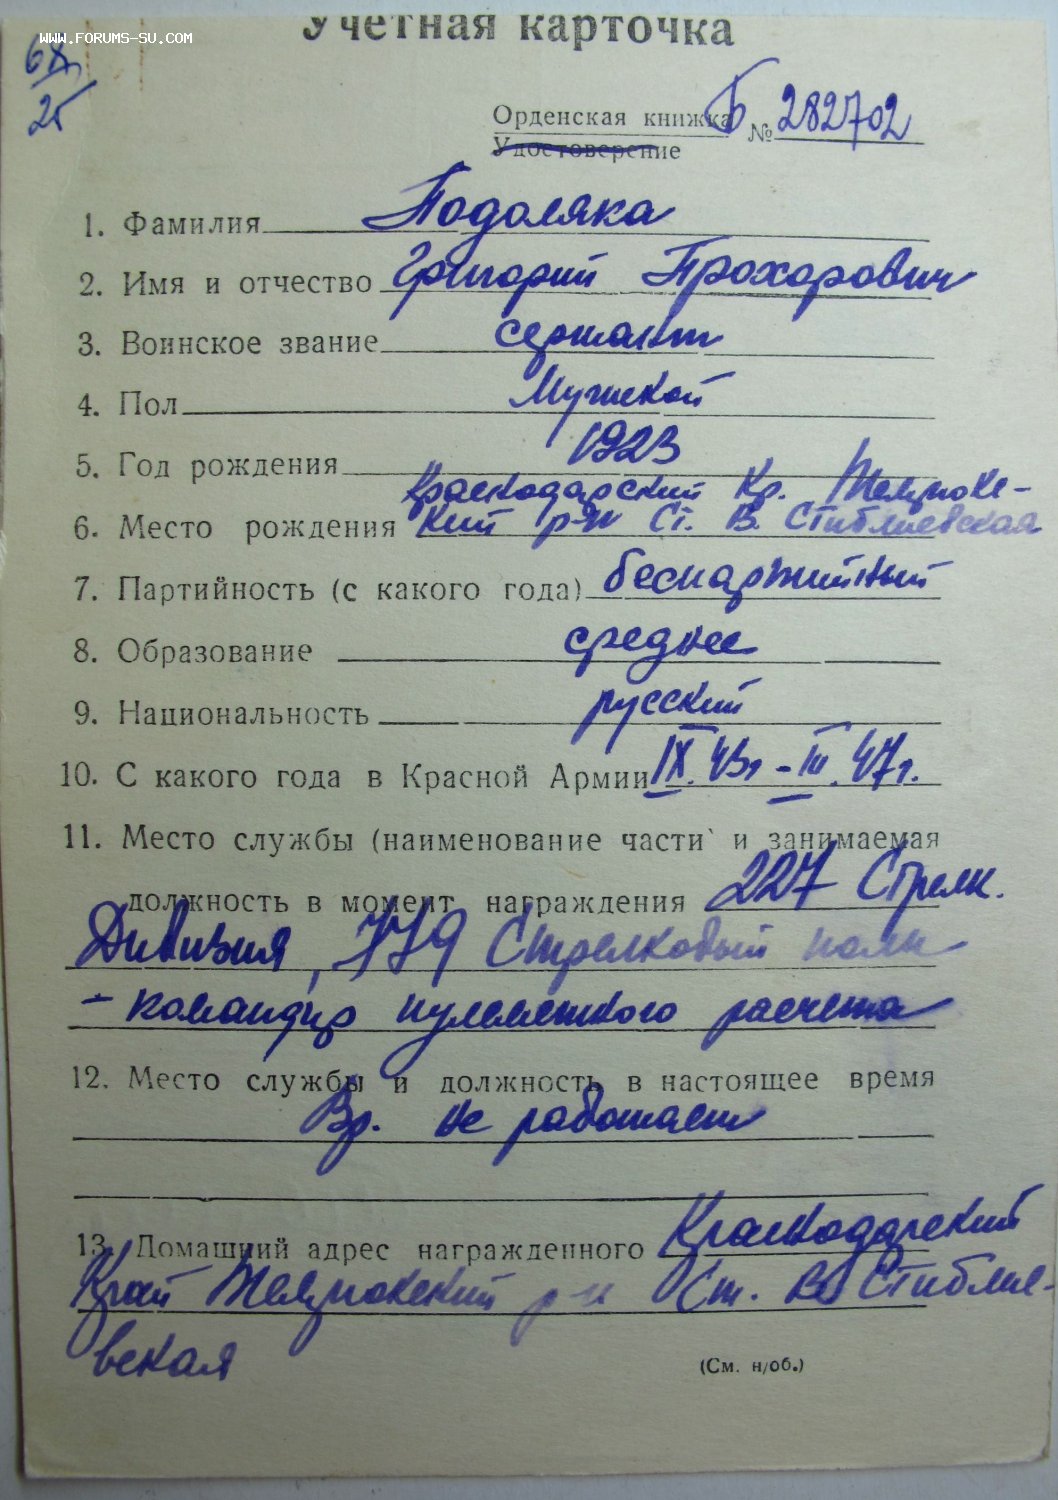 www.forums-su.com
Учетная карточка
25
Орденская книжка Б № 282702
Удостоверение
1. Фамилия Подоляка
2. Имя и отчество Григорий Прохорович
3. Воинское звание сержант
4. Пол Мужской
5. Год рождения 1923
Краснодарский Кр. Темрюкс-
6. Место рождения кий р-н Ст. В. Стиблиевская
7. Партийность (с какого года) беспартийный
8. Образование среднее
9. Национальность русский
10. С какого года в Красной Армии IX.43г - III.47г.
11. Место службы (наименование части и занимаемая
должность в момент награждения 227 Стрелк.
Дивизия, 779 Стрелковый полк
- командир пулеметного расчета
12. Место службы и должность в настоящее время
Вр. не работает
13. Домашний адрес награжденного Краснодарский
Край Темрюкский р-н Ст. В Стиблие-
вская
(См. н/об.)